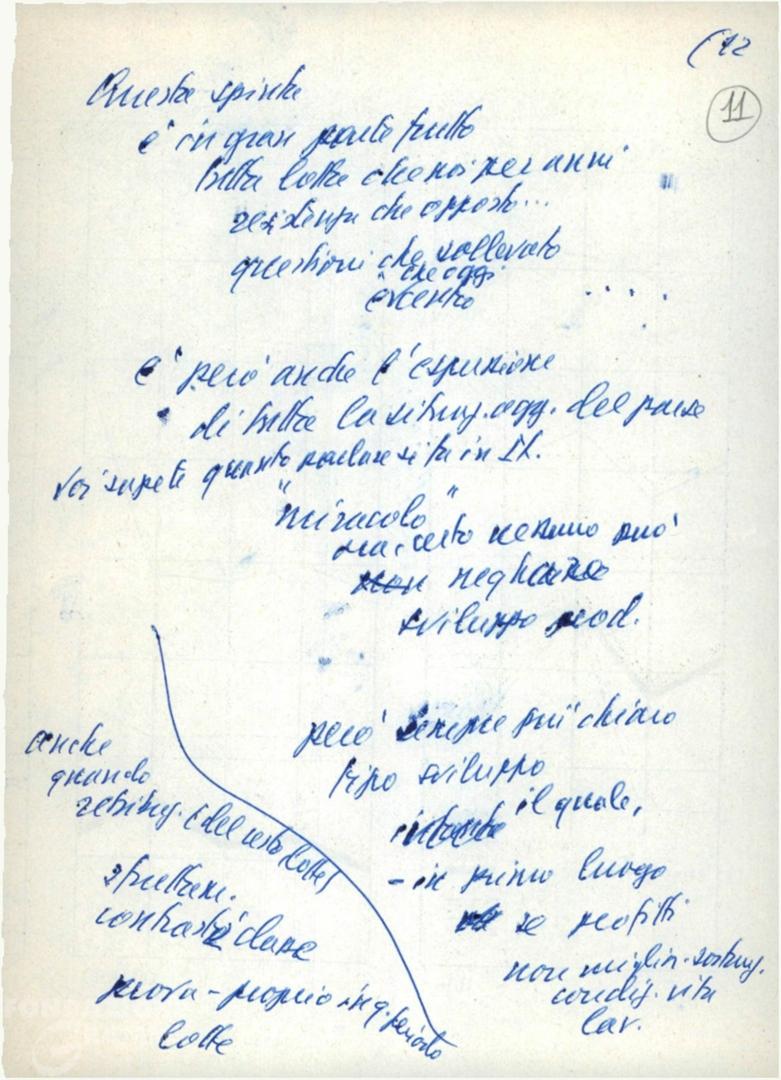 (12
11
Questa spinta
è in gran parte frutto
della lotta che noi per anni
resistenza che opposto...
questioni che sollevato
e che oggi
al centro
....
è però anche l'espressione
di tutta la situaz. ogg. del paese
Voi sapete quanto parlare si fa in It.
"miracolo"
ma certo nessuno può
non negare
sviluppo prod.
però sempre più chiaro
tipo sviluppo
il quale,
intanto
- in primo luogo
se profitti
non miglior. sostanz.
condiz. vita
lav.
anche
quando
(lotte)
sfruttam.
contrasti classe
prova - proprio in q. periodo
lotte